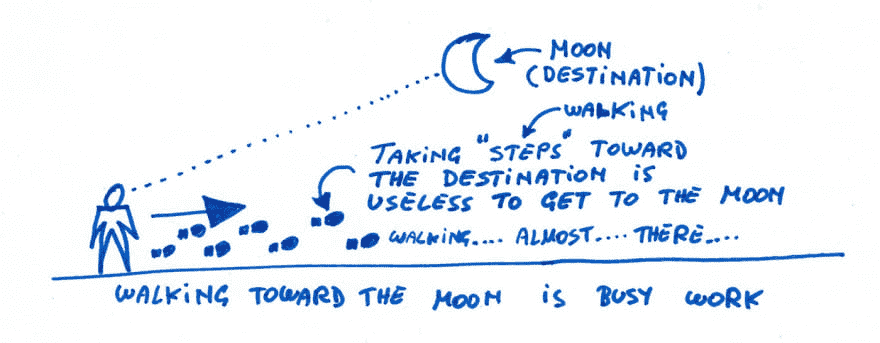 MOON
(DESTINATION)
WALKING
TAKING "STEPS" TOWARD
THE DESTINATION IS
USELESS TO GET TO THE MOON
WALKING.... ALMOST.... THERE....
WALKING TOWARD THE MOON IS BUSY WORK